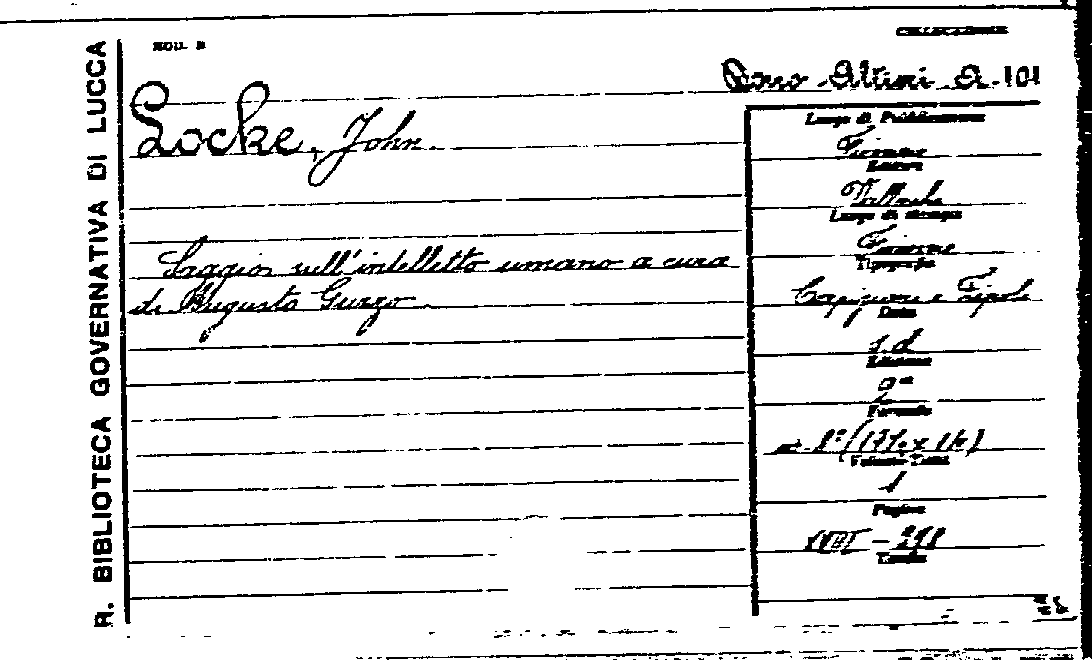 R. BIBLIOTECA GOVERNATIVA DI LUCCA
MOD. B
COLLOCAZIONE
Dono Altini A. 101
Locke, John.
Saggio sull'intelletto umano a cura
di Augusto Guzzo
Luogo di Pubblicazione
Firenze
Editore
Vallecchi
Luogo di stampa
Firenze
Tipografia
e Tipoli
Data
s.d.
Edizione
2ª
Formato
8°
Volume-Tomo
1
Pagine
XVIII - 298
Tavole